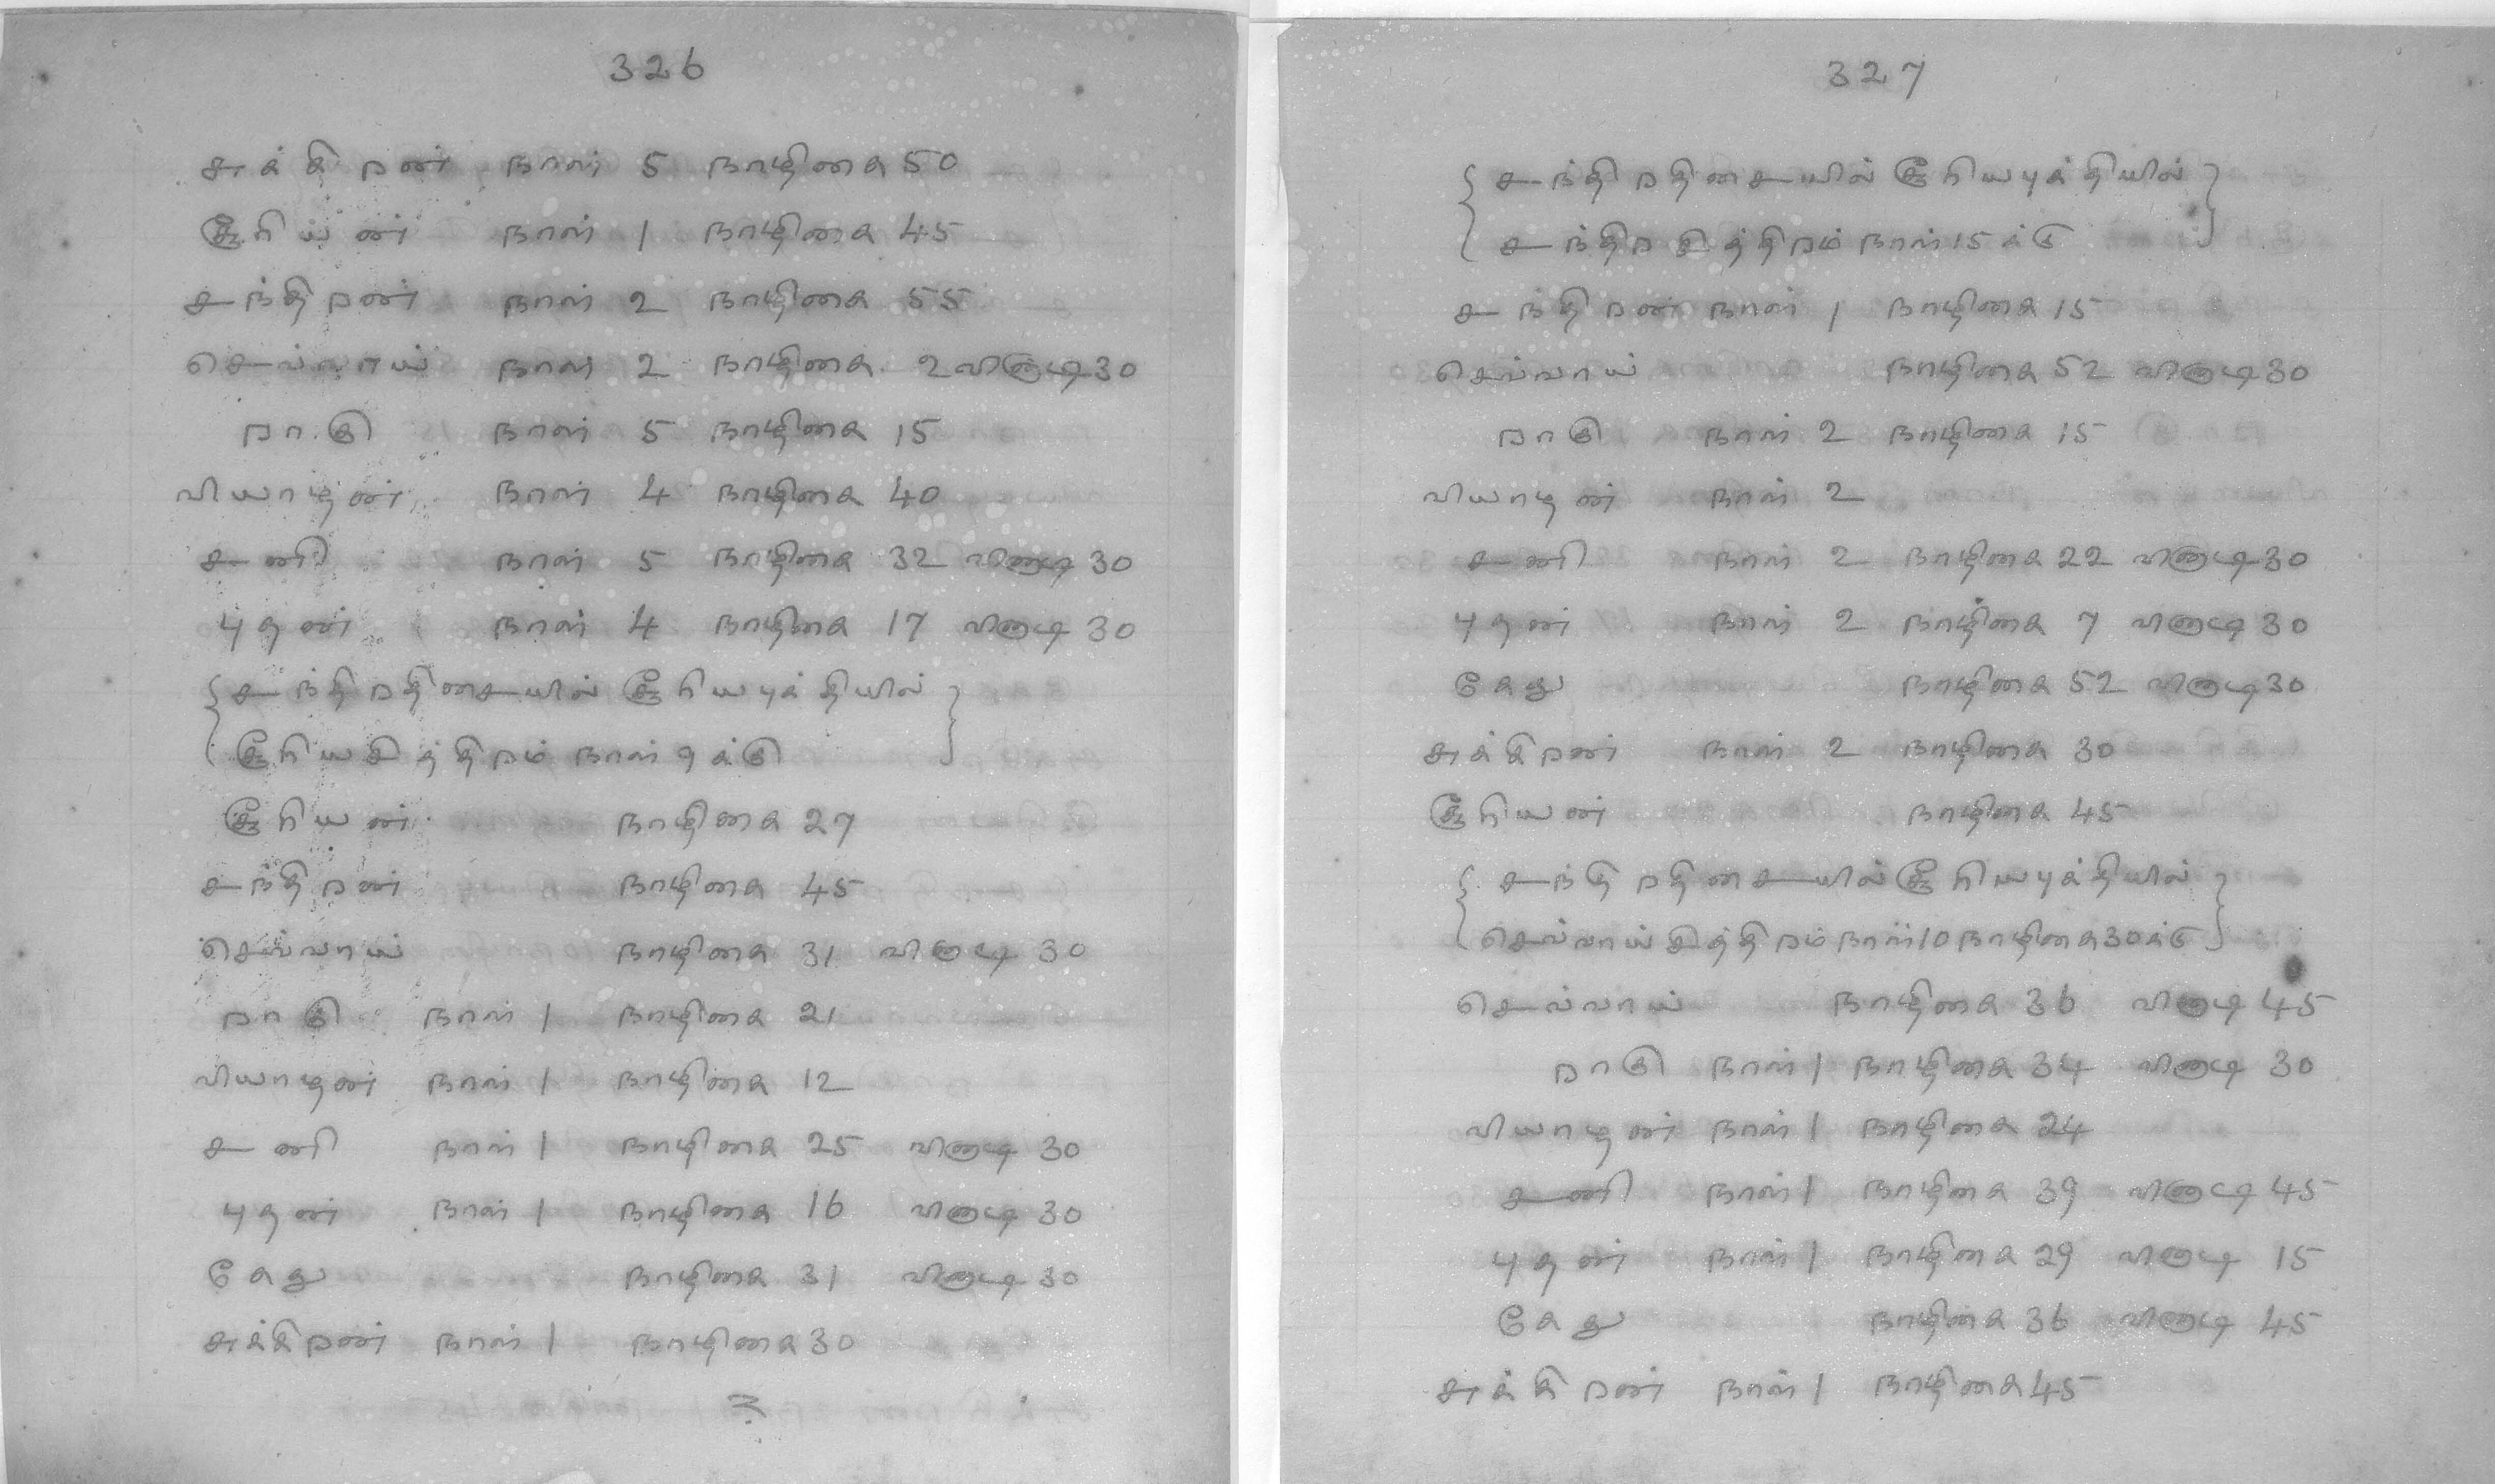 326
சுக்கிறன் நாள் 5 நாழிகை 50
சூரியன் நாள் 1 நாழிகை 45
சந்திறன் நாள் 2 நாழிகை 55
செவ்வாய் நாள் 2 நாழிகை 2 விநாடி 30
றாகு நாள் 5 நாழிகை 15
வியாழன் நாள் 4 நாழிகை 40
சனி நாள் 5 நாழிகை 32 விநாடி 30
புதன் நாள் 4 நாழிகை 17 விநாடி 30
{சந்திறதிசையில் சூரியபுக்தியில்}
{சூரியசித்திறம் நாள் 9க்கு}
சூரியன் நாழிகை 27
சந்திறன் நாழிகை 45
செவ்வாய் நாழிகை 31 விநாடி 30
றாகு நாள் 1 நாழிகை 21
வியாழன் நாள் 1 நாழிகை 12
சனி நாள் 1 நாழிகை 25 விநாடி 30
புதன் நாள் 1 நாழிகை 16 விநாடி 30
கேது நாழிகை 31 விநாடி 30
சுக்கிறன் நாள் 1 நாழிகை 30
327
{சந்திறதிசையில் சூரியபுக்தியில்}
{சந்திறசித்திறம் நாள் 15க்கு}
சந்திறன் நாள் 1 நாழிகை 15
செவ்வாய் நாழிகை 52 விநாடி 30
றாகு நாள் 2 நாழிகை 15
வியாழன் நாள் 2
சனி நாள் 2 நாழிகை 22 விநாடி 30
புதன் நாள் 2 நாழிகை 7 விநாடி 30
கேது நாழிகை 52 விநாடி 30
சுக்கிறன் நாள் 2 நாழிகை 30
சூரியன் நாழிகை 45
{சந்திறதிசையில் சூரியபுக்தியில்}
{செவ்வாய்சித்திறம் நாள் 10 நாழிகை 30க்கு}
செவ்வாய் நாழிகை 36 விநாடி 45
றாகு நாள் 1 நாழிகை 34 விநாடி 30
வியாழன் நாள் 1 நாழிகை 24
சனி நாள் 1 நாழிகை 39 விநாடி 45
புதன் நாள் 1 நாழிகை 29 விநாடி 15
கேது நாழிகை 36 விநாடி 45
சுக்கிறன் நாள் 1 நாழிகை 45